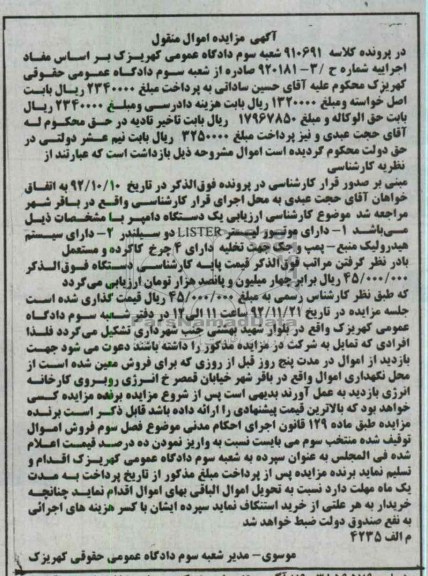 آگهی مزایده اموال منقول
در پرونده کلاسه ۹۱۰۶۹۱ شعبه سوم دادگاه عمومی کهریزک بر اساس مفاد
اجراییه شماره ح /۳- ۹۲۰۱۸۱ صادره از شعبه سوم دادگاه عمومی حقوقی
کهریزک محکوم علیه آقای حسین ساداتی به پرداخت مبلغ ۲۳۴۰۰۰۰ ریال بابت
اصل خواسته ومبلغ ۱۳۲۰۰۰۰ ریال بابت هزینه دادرسی ومبلغ ۲۳۴۰۰۰۰ ریال
بابت حق الوکاله و مبلغ ۱۷۹۶۷۸۵۰ ریال بابت تاخیر تادیه در حق محکوم له
آقای حجت عبدی و نیز پرداخت مبلغ ۳۲۵۰۰۰۰ ریال بابت نیم عشر دولتی در
حق دولت محکوم گردیده است اموال مشروحه ذیل بازداشت است که عبارتند از
نظریه کارشناسی
مبنی بر صدور قرار کارشناسی در پرونده فوق‌الذکر در تاریخ ۹۲/۱۰/۱۰ به اتفاق
خواهان آقای حجت عبدی به محل اجرای قرار کارشناسی واقع در باقر شهر
مراجعه شد موضوع کارشناسی ارزیابی یک دستگاه دامپر با مشخصات ذیل
می‌باشد ۱- دارای موتور لیستر LISTER دو سیلندر ۲- دارای سیستم
هیدرولیک منبع- پمپ و جک جهت تخلیه دارای ۴ چرخ کاکرده و مستعمل
بادر نظر گرفتن مراتب فوق‌الذکر قیمت پایه کارشناسی دستگاه فوق‌الذکر
۴۵/۰۰۰/۰۰۰ ریال برابر چهار میلیون و پانصد هزار تومان ارزیابی می‌گردد
که طبق نظر کارشناس رسمی به مبلغ ۴۵/۰۰۰/۰۰۰ ریال قیمت گذاری شده است
جلسه مزایده در تاریخ ۹۲/۱۱/۲۱ ساعت ۱۱ الی ۱۲ در دفتر شعبه سوم دادگاه
عمومی کهریزک واقع در بلوار شهید بهشتی جنب شهرداری تشکیل می‌گردد فلذا
افرادی که تمایل به شرکت در مزایده مذکور را داشته باشند دعوت می شود جهت
بازدید از اموال در مدت پنج روز قبل از روزی که برای فروش معین شده است از
محل نگهداری اموال واقع در باقر شهر خیابان قمصر خ انرژی روبروی کارخانه
انرژی بازدید به عمل آورند بدیهی است پس از شروع مزایده برنده مزایده کسی
خواهد بود که بالاترین قیمت پیشنهادی را ارائه داده باشد قابل ذکر است برنده
مزایده طبق ماده ۱۲۹ قانون اجرای احکام مدنی موضوع فصل سوم فروش اموال
توقیف شده منتخب سوم می بایست نسبت به واریز نمودن ده درصد قیمت اعلام
شده فی المجلس به عنوان سپرده به شعبه سوم دادگاه عمومی کهریزک اقدام و
تسلیم نماید برنده مزایده پس از پرداخت مبلغ مذکور از تاریخ پرداخت به مدت
یک ماه مهلت دارد نسبت به تحویل اموال الباقی بهای اموال اقدام نماید چنانچه
خریدار به هر علتی از خرید استنکاف نماید سپرده ایشان با کسر هزینه های اجرائی
به نفع صندوق دولت ضبط خواهد شد
م الف ۴۲۳۵
موسوی- مدیر شعبه سوم دادگاه عمومی حقوقی کهریزک